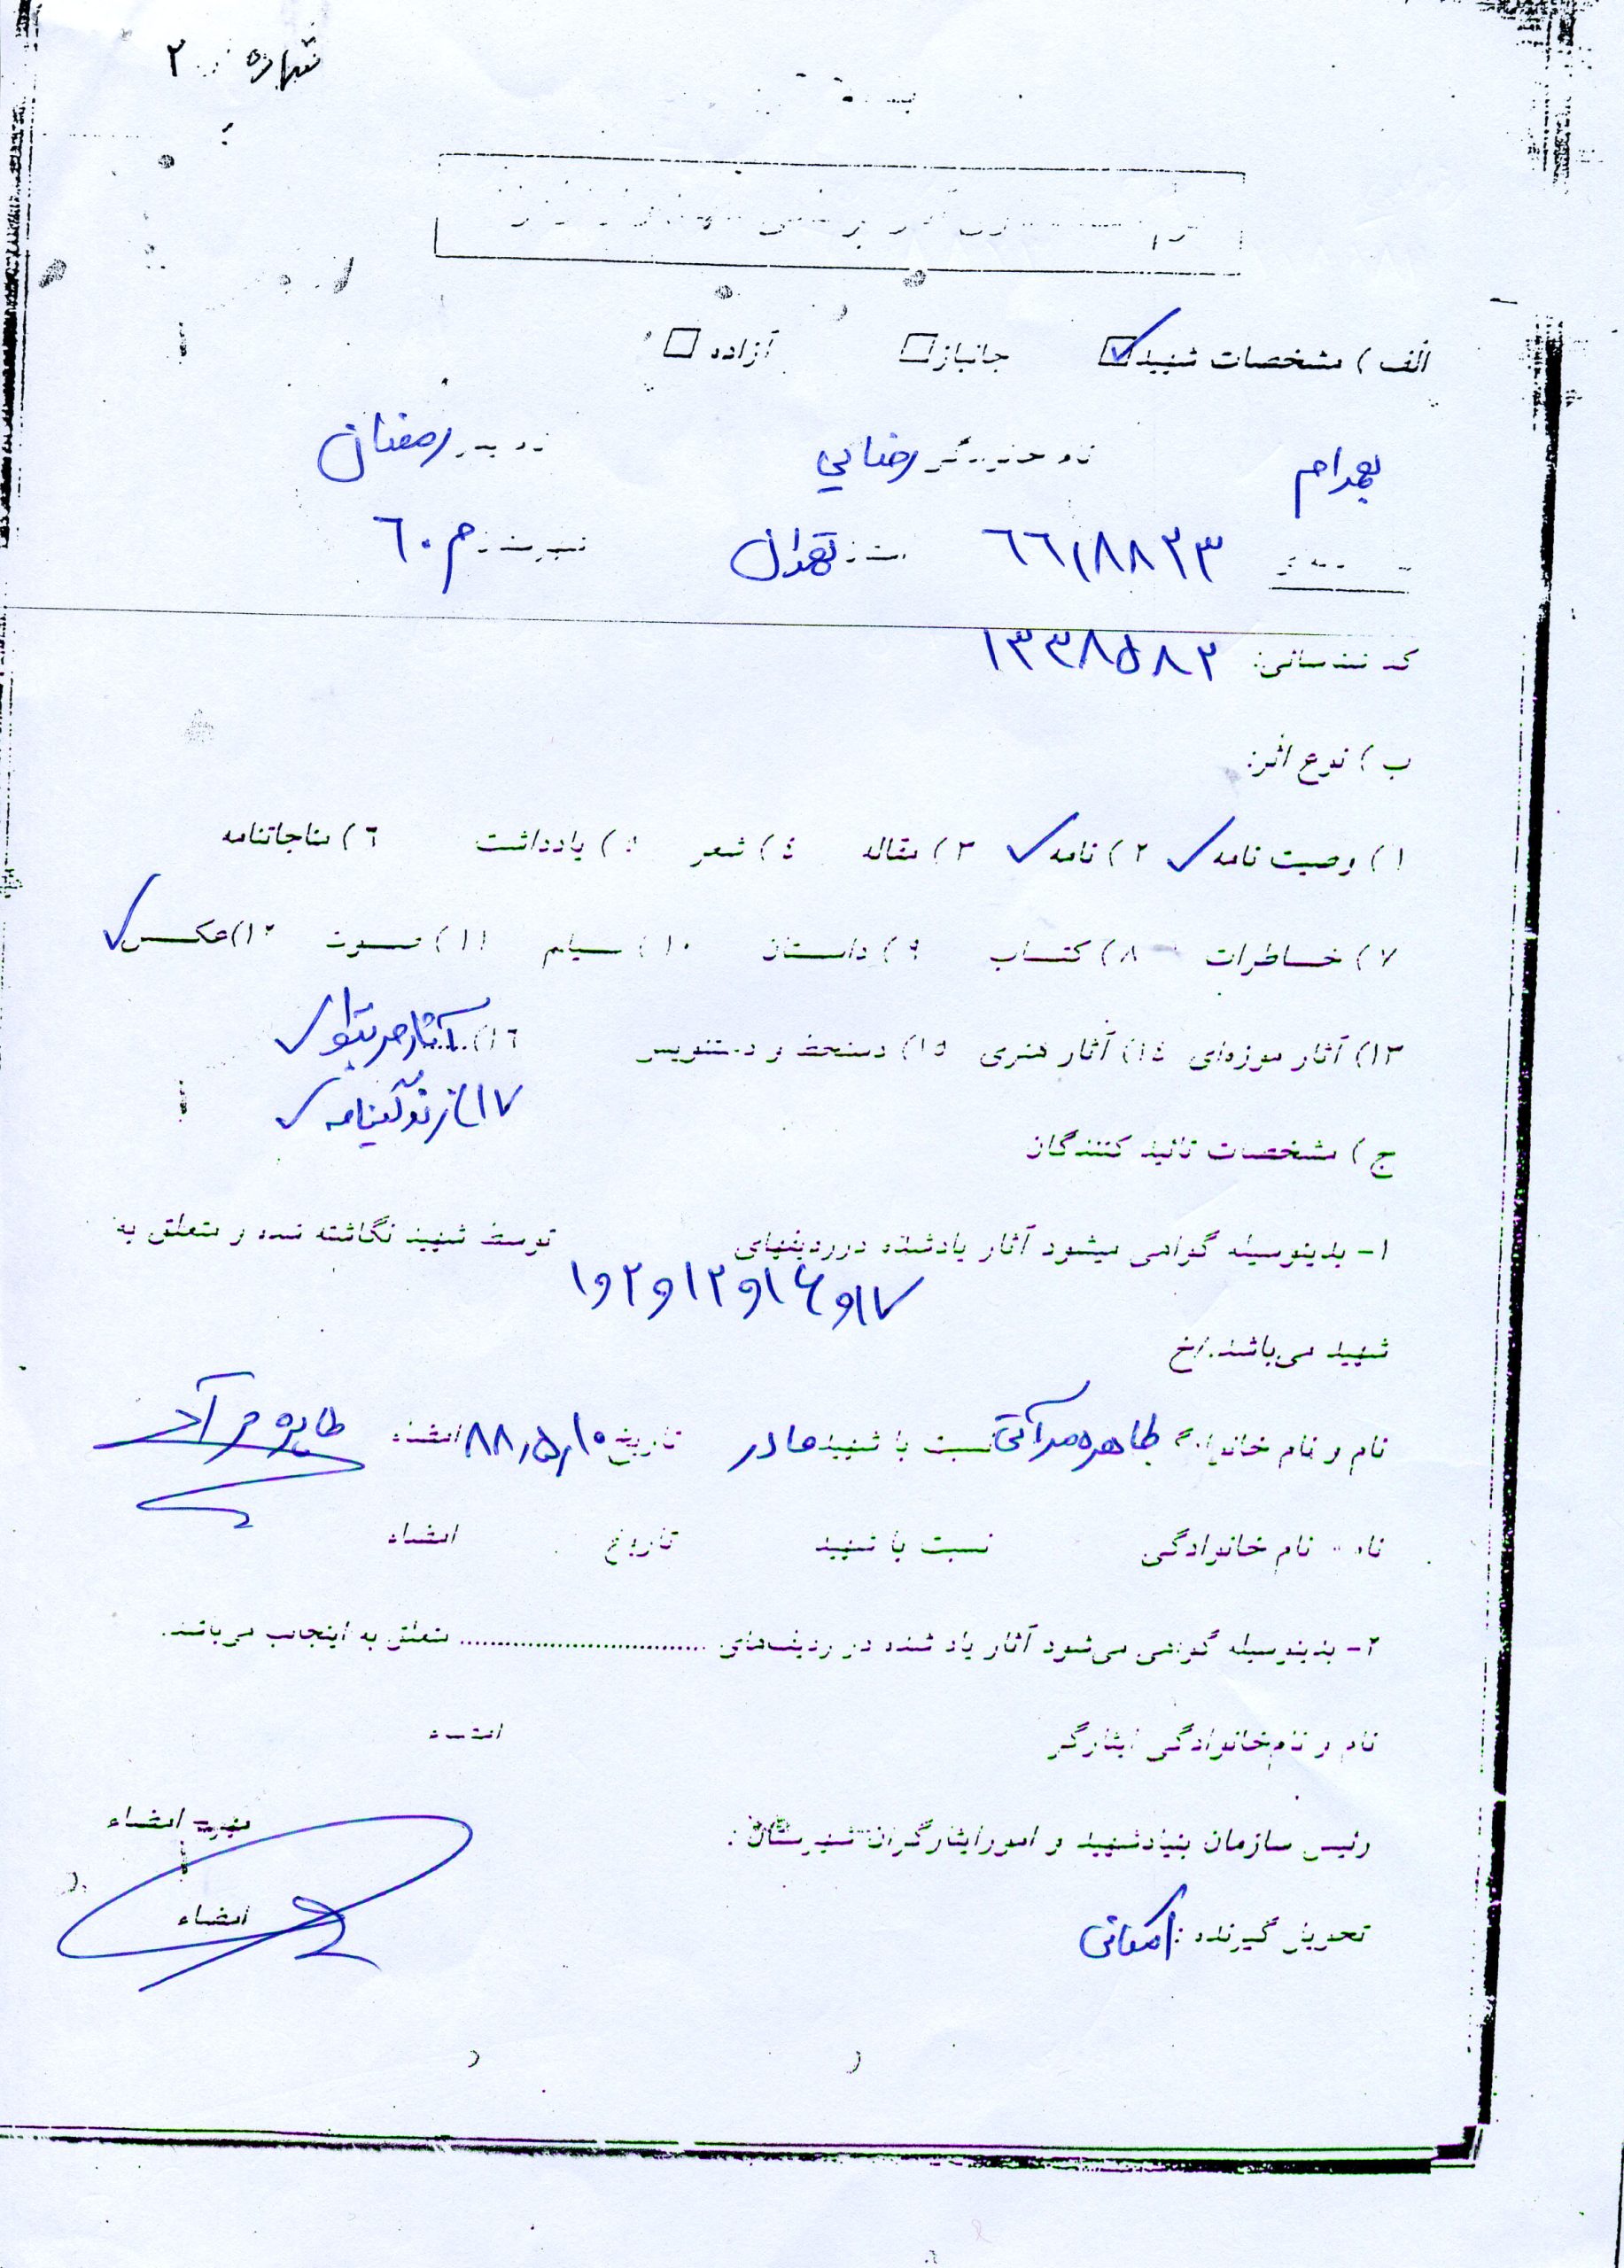 شماره ۲
الف) مشخصات شهید جانباز آزاده
بهرام نام خانوادگی رضایی نام پدر رمضان
۶۶۱۸۸۲۳ تهران م ۶۰
کد شناسائی: ۱۳۳۸۵۸۲
ب) نوع اثر:
۱) وصیت نامه ✓ ۲) نامه ✓ ۳) مقاله ٤) شعر ۵) یادداشت ٦) مناجاتنامه
۷) خاطرات ۸) کتاب ۹) داستان ۱۰) فیلم ۱۱) صوت ۱۲) عکس ✓
۱۳) آثار موزه‌ای ۱٤) آثار هنری ۱۵) دستخط و دستنویس ۱٦) آثار مربوط ✓
۱۷) زندگینامه ✓
ج) مشخصات تائید کنندگان
۱- بدینوسیله گواهی میشود آثار یادشده در ردیفهای توسط شهید نگاشته شده و متعلق به
۱ و ۲ و ۱۲ و ۱۶ و ۱۷
شهید می‌باشد./خ
نام و نام خانوادگی طاهره مرآتی نسبت با شهید مادر تاریخ ۸۸/۵/۱۰ امضاء
نام و نام خانوادگی نسبت با شهید تاریخ امضاء
۲- بدینوسیله گواهی می‌شود آثار یاد شده در ردیف‌های .......... متعلق به اینجانب می‌باشد.
نام و نام‌خانوادگی ایثارگر امضاء
رئیس سازمان بنیادشهید و امورایثارگران شهرستان : مهر و امضاء
تحویل گیرنده : امضاء